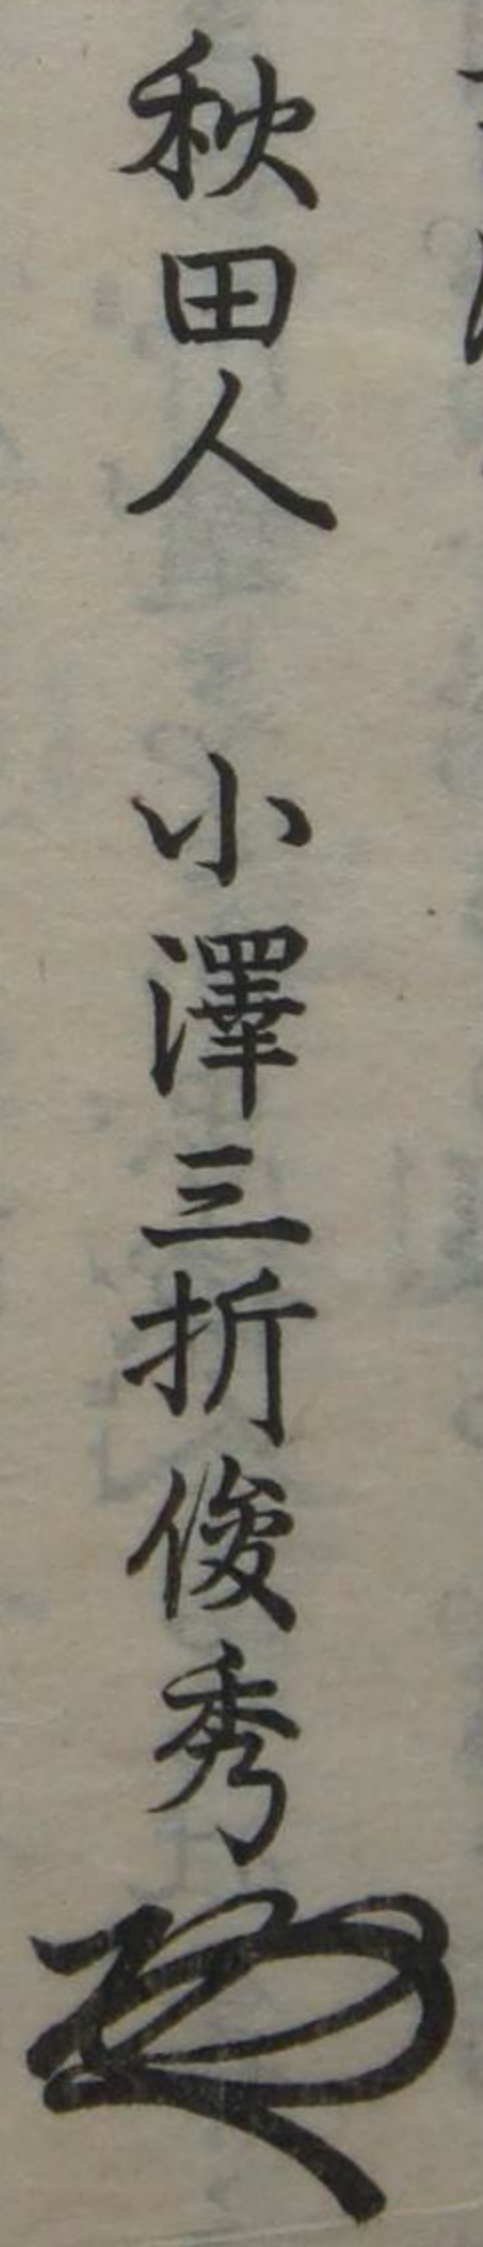 秋田人 小澤三折俊秀